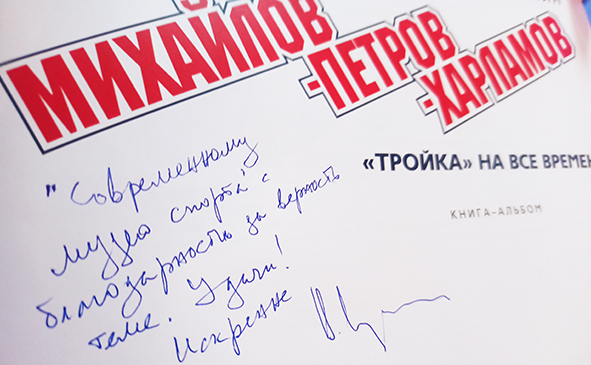 МИХАЙЛОВ
-ПЕТРОВ
-ХАРЛАМОВ
«ТРОЙКА» НА ВСЕ ВРЕМЕН
КНИГА-АЛЬБОМ
"Современному
музею спорта" с
благодарностью за верность
теме. Удачи!
Искренне